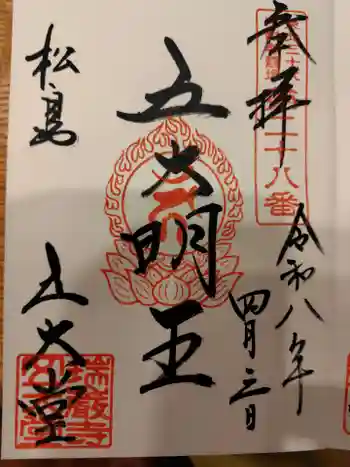 奉拝
令和八年
四月三日
五大明王
松島
五大堂
二十八番
瑞巌寺
五大堂